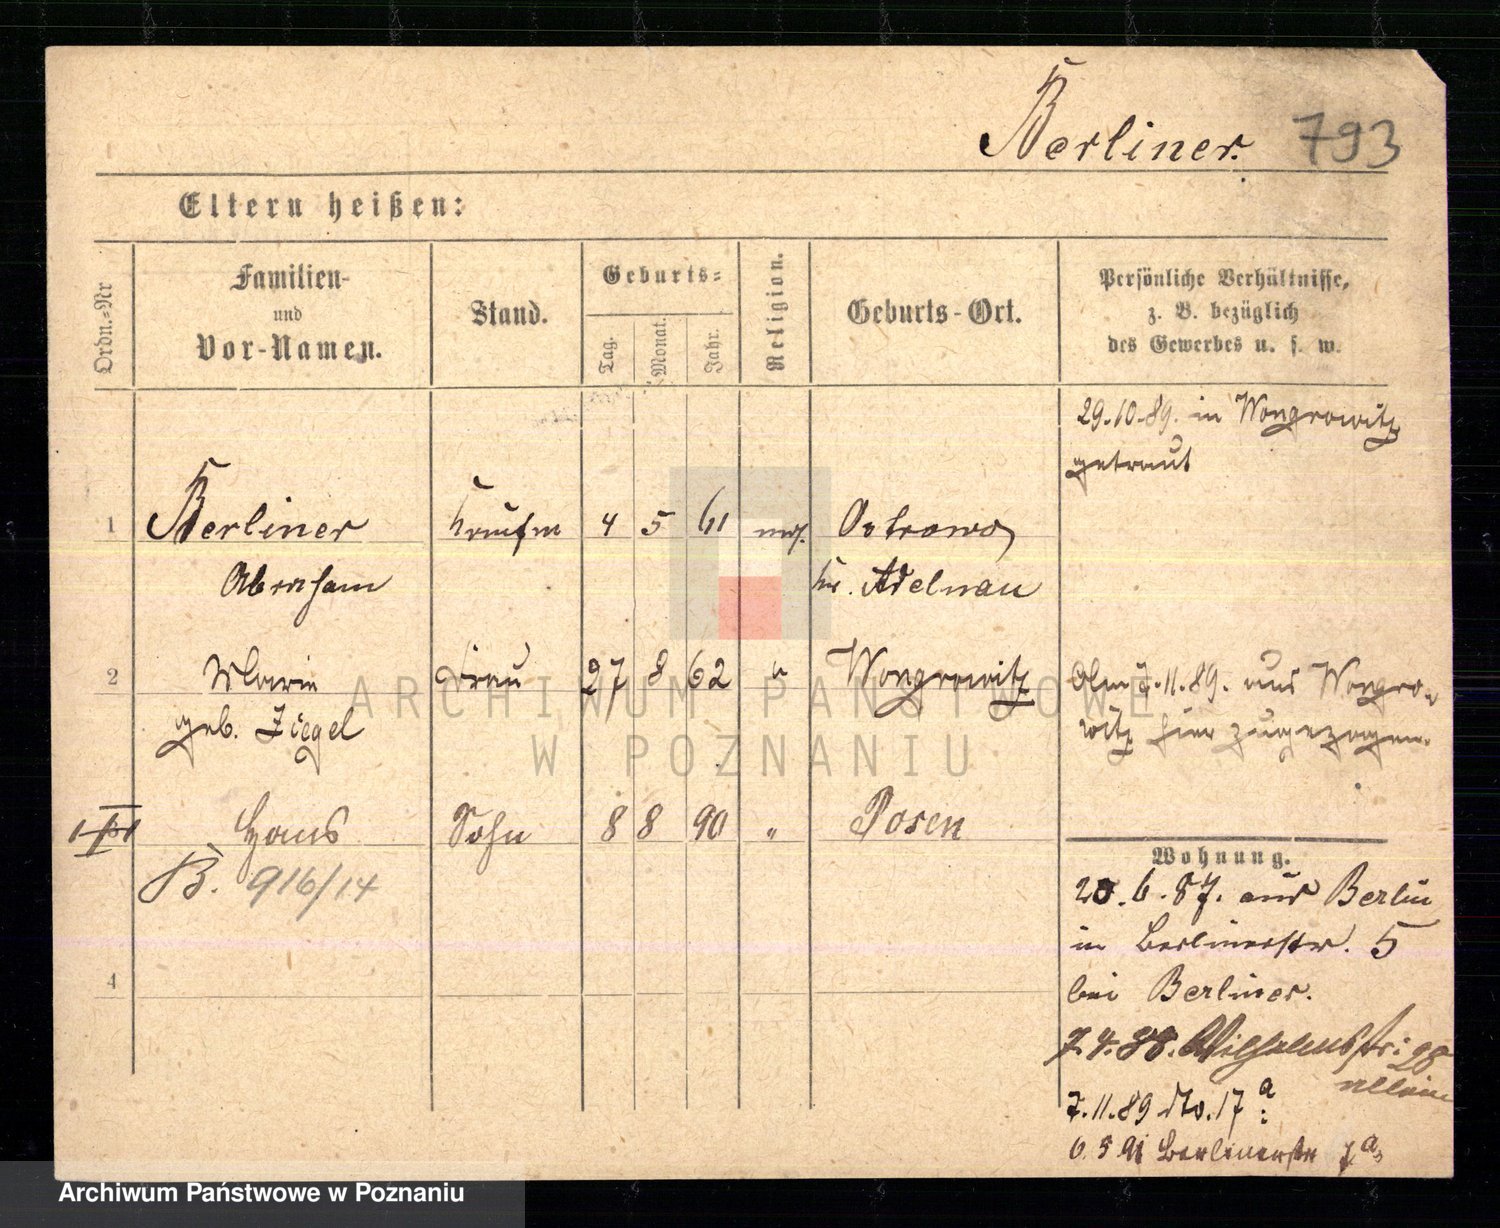 Berliner. 793
Eltern heißen:
Ordn.-Nr
Familien-
und
Vor-Namen.
Stand.
Geburts-
Tag.
Monat.
Jahr.
Religion.
Geburts-Ort.
Persönliche Verhältnisse,
z. B. bezüglich
des Gewerbes u. s. w.
29.10.89. in Wongrowitz
getraut
1 Berliner Kaufm 4 5 61 mos. Ostrowo
Abraham Kr. Adelnau
2 Marie Frau 27 8 62 " Wongrowitz
geb. Ziegel
Am 11.89. aus Wongro-
witz hier zugezogen.
Hans Sohn 8 8 90 " Posen
B. 916/14
4
Wohnung.
20.6.87. aus Berlin
in Berlinerstr. 5
bei Berliner.
7.4.88. Wilhelmstr: 28
allein
7.11.89 dto. 17 a
6.5.91 Berlinerstr 7a
ARCHIWUM PAŃSTWOWE
W POZNANIU
Archiwum Państwowe w Poznaniu